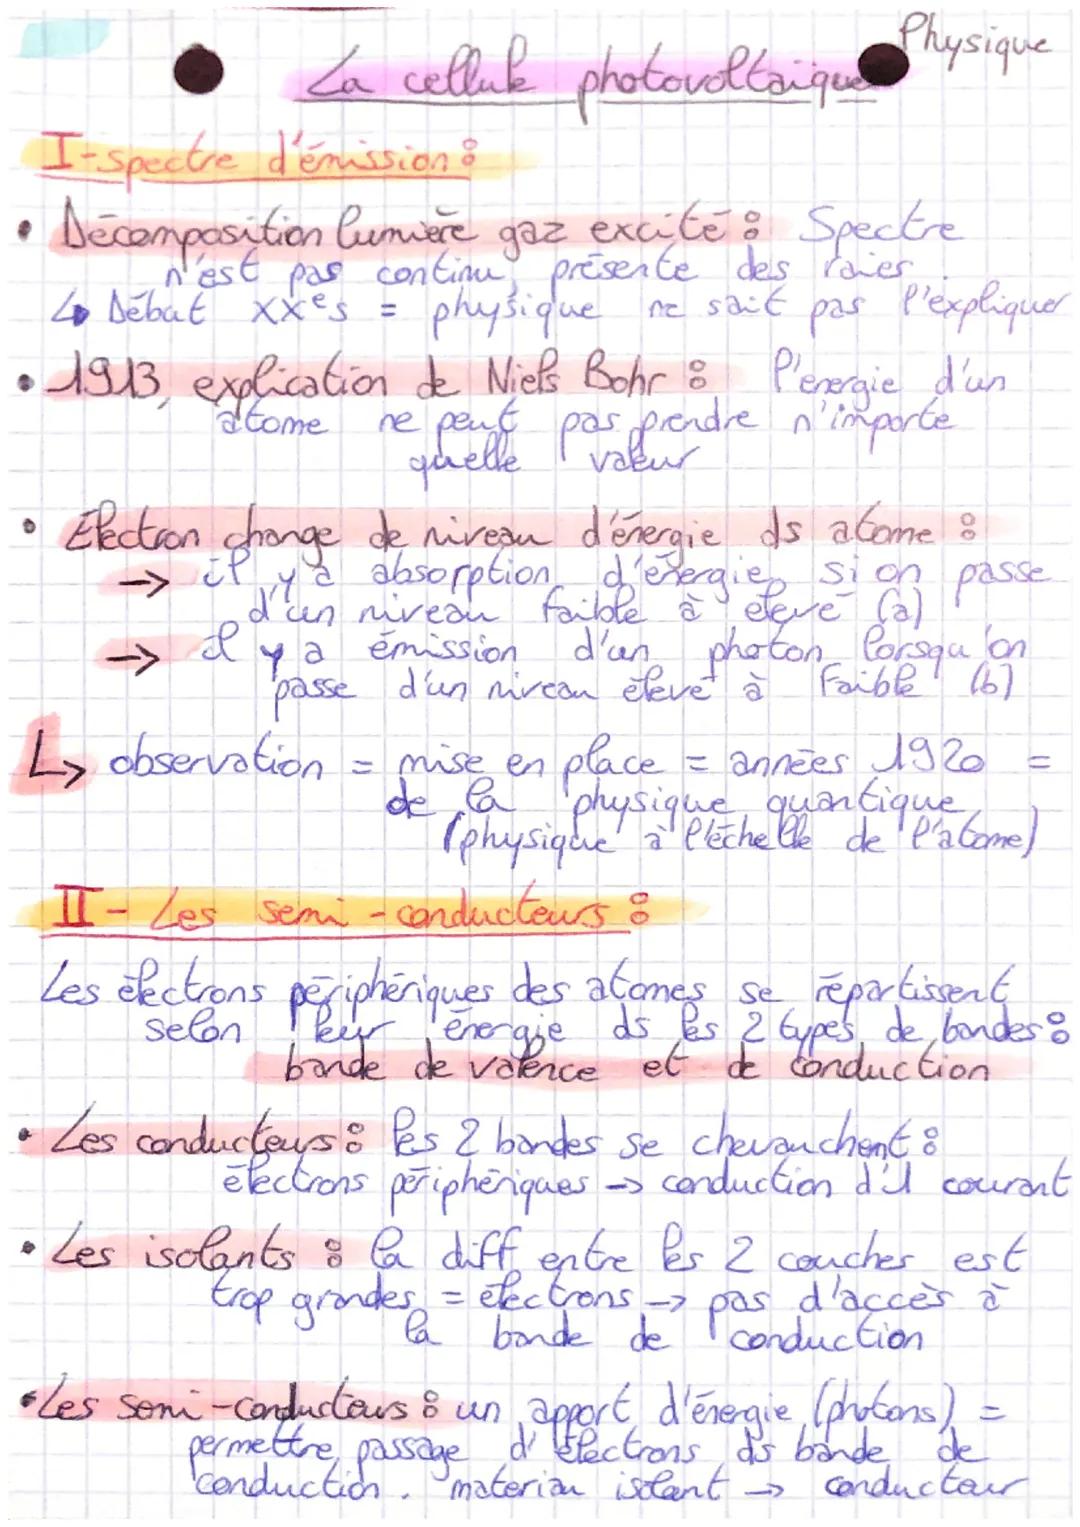 Physique
La cellule photovoltaïque
I-spectre d'émission :
• Décomposition lumière gaz excité : Spectre
n'est pas continu, présente des raies.
↳ Début XXe s = physique ne sait pas l'expliquer
• 1913, explication de Niels Bohr : l'énergie d'un
atome ne peut pas prendre n'importe
quelle valeur
• Electron change de niveau d'énergie ds atome :
→ il y a absorption d'énergie si on passe
d'un niveau faible à élevé (a)
→ il y a émission d'un photon lorsqu'on
passe d'un niveau élevé à faible (b)
↳ observation = mise en place = années 1920 =
de la physique quantique
(physique à l'échelle de l'atome)
II - Les semi-conducteurs :
Les électrons périphériques des atomes se répartissent
selon leur énergie ds les 2 types de bandes :
bande de valence et de conduction
• Les conducteurs : les 2 bandes se chevauchent :
électrons périphériques → conduction d'1 courant
• Les isolants : la diff entre les 2 couches est
trop grandes = électrons → pas d'accès à
la bande de conduction
• Les semi-conducteurs : un apport d'énergie (photons) =
permettre passage d'électrons ds bande de
conduction. materiau isolant → conducteur